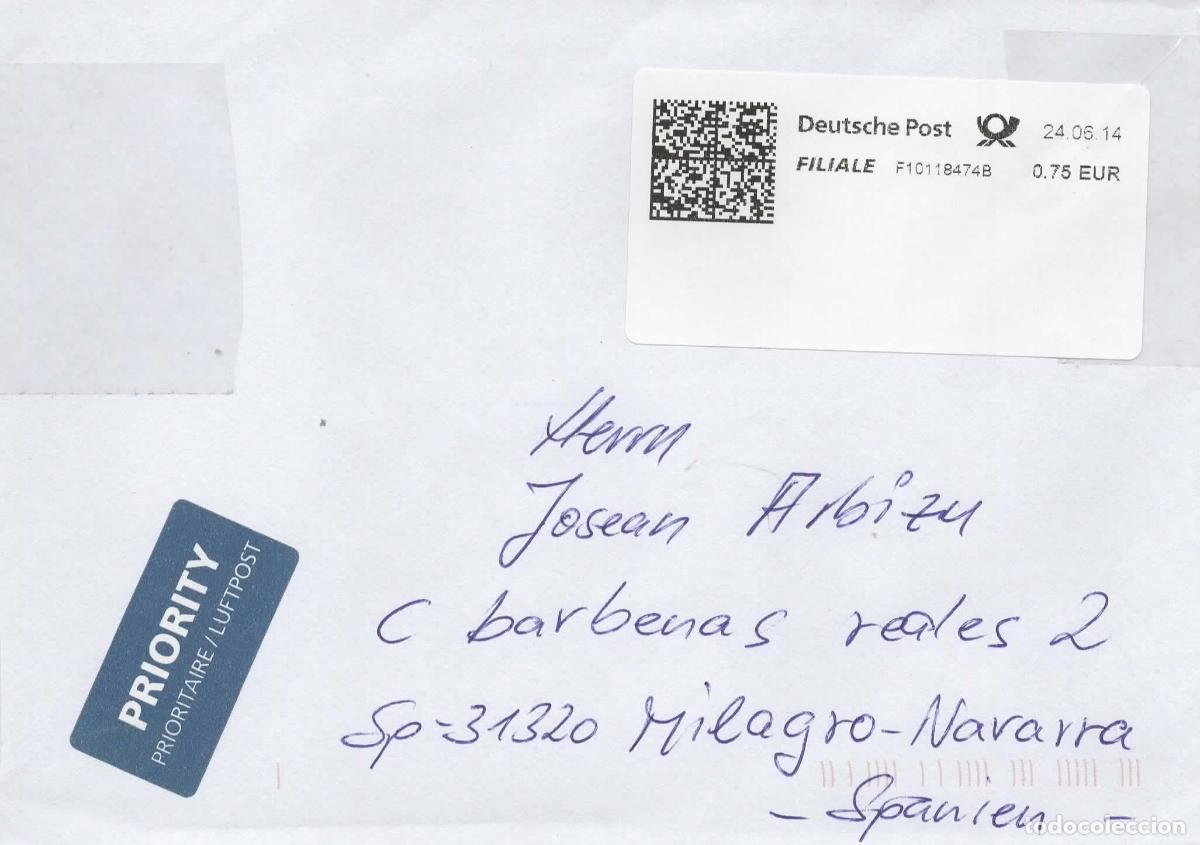 Deutsche Post 24.06.14
FILIALE F10118474B 0.75 EUR
Herrn
Josean Arbizu
C barbenas reales 2
Sp-31320 Milagro-Navarra
- Spanien -
PRIORITY
PRIORITAIRE / LUFTPOST
todocoleccion